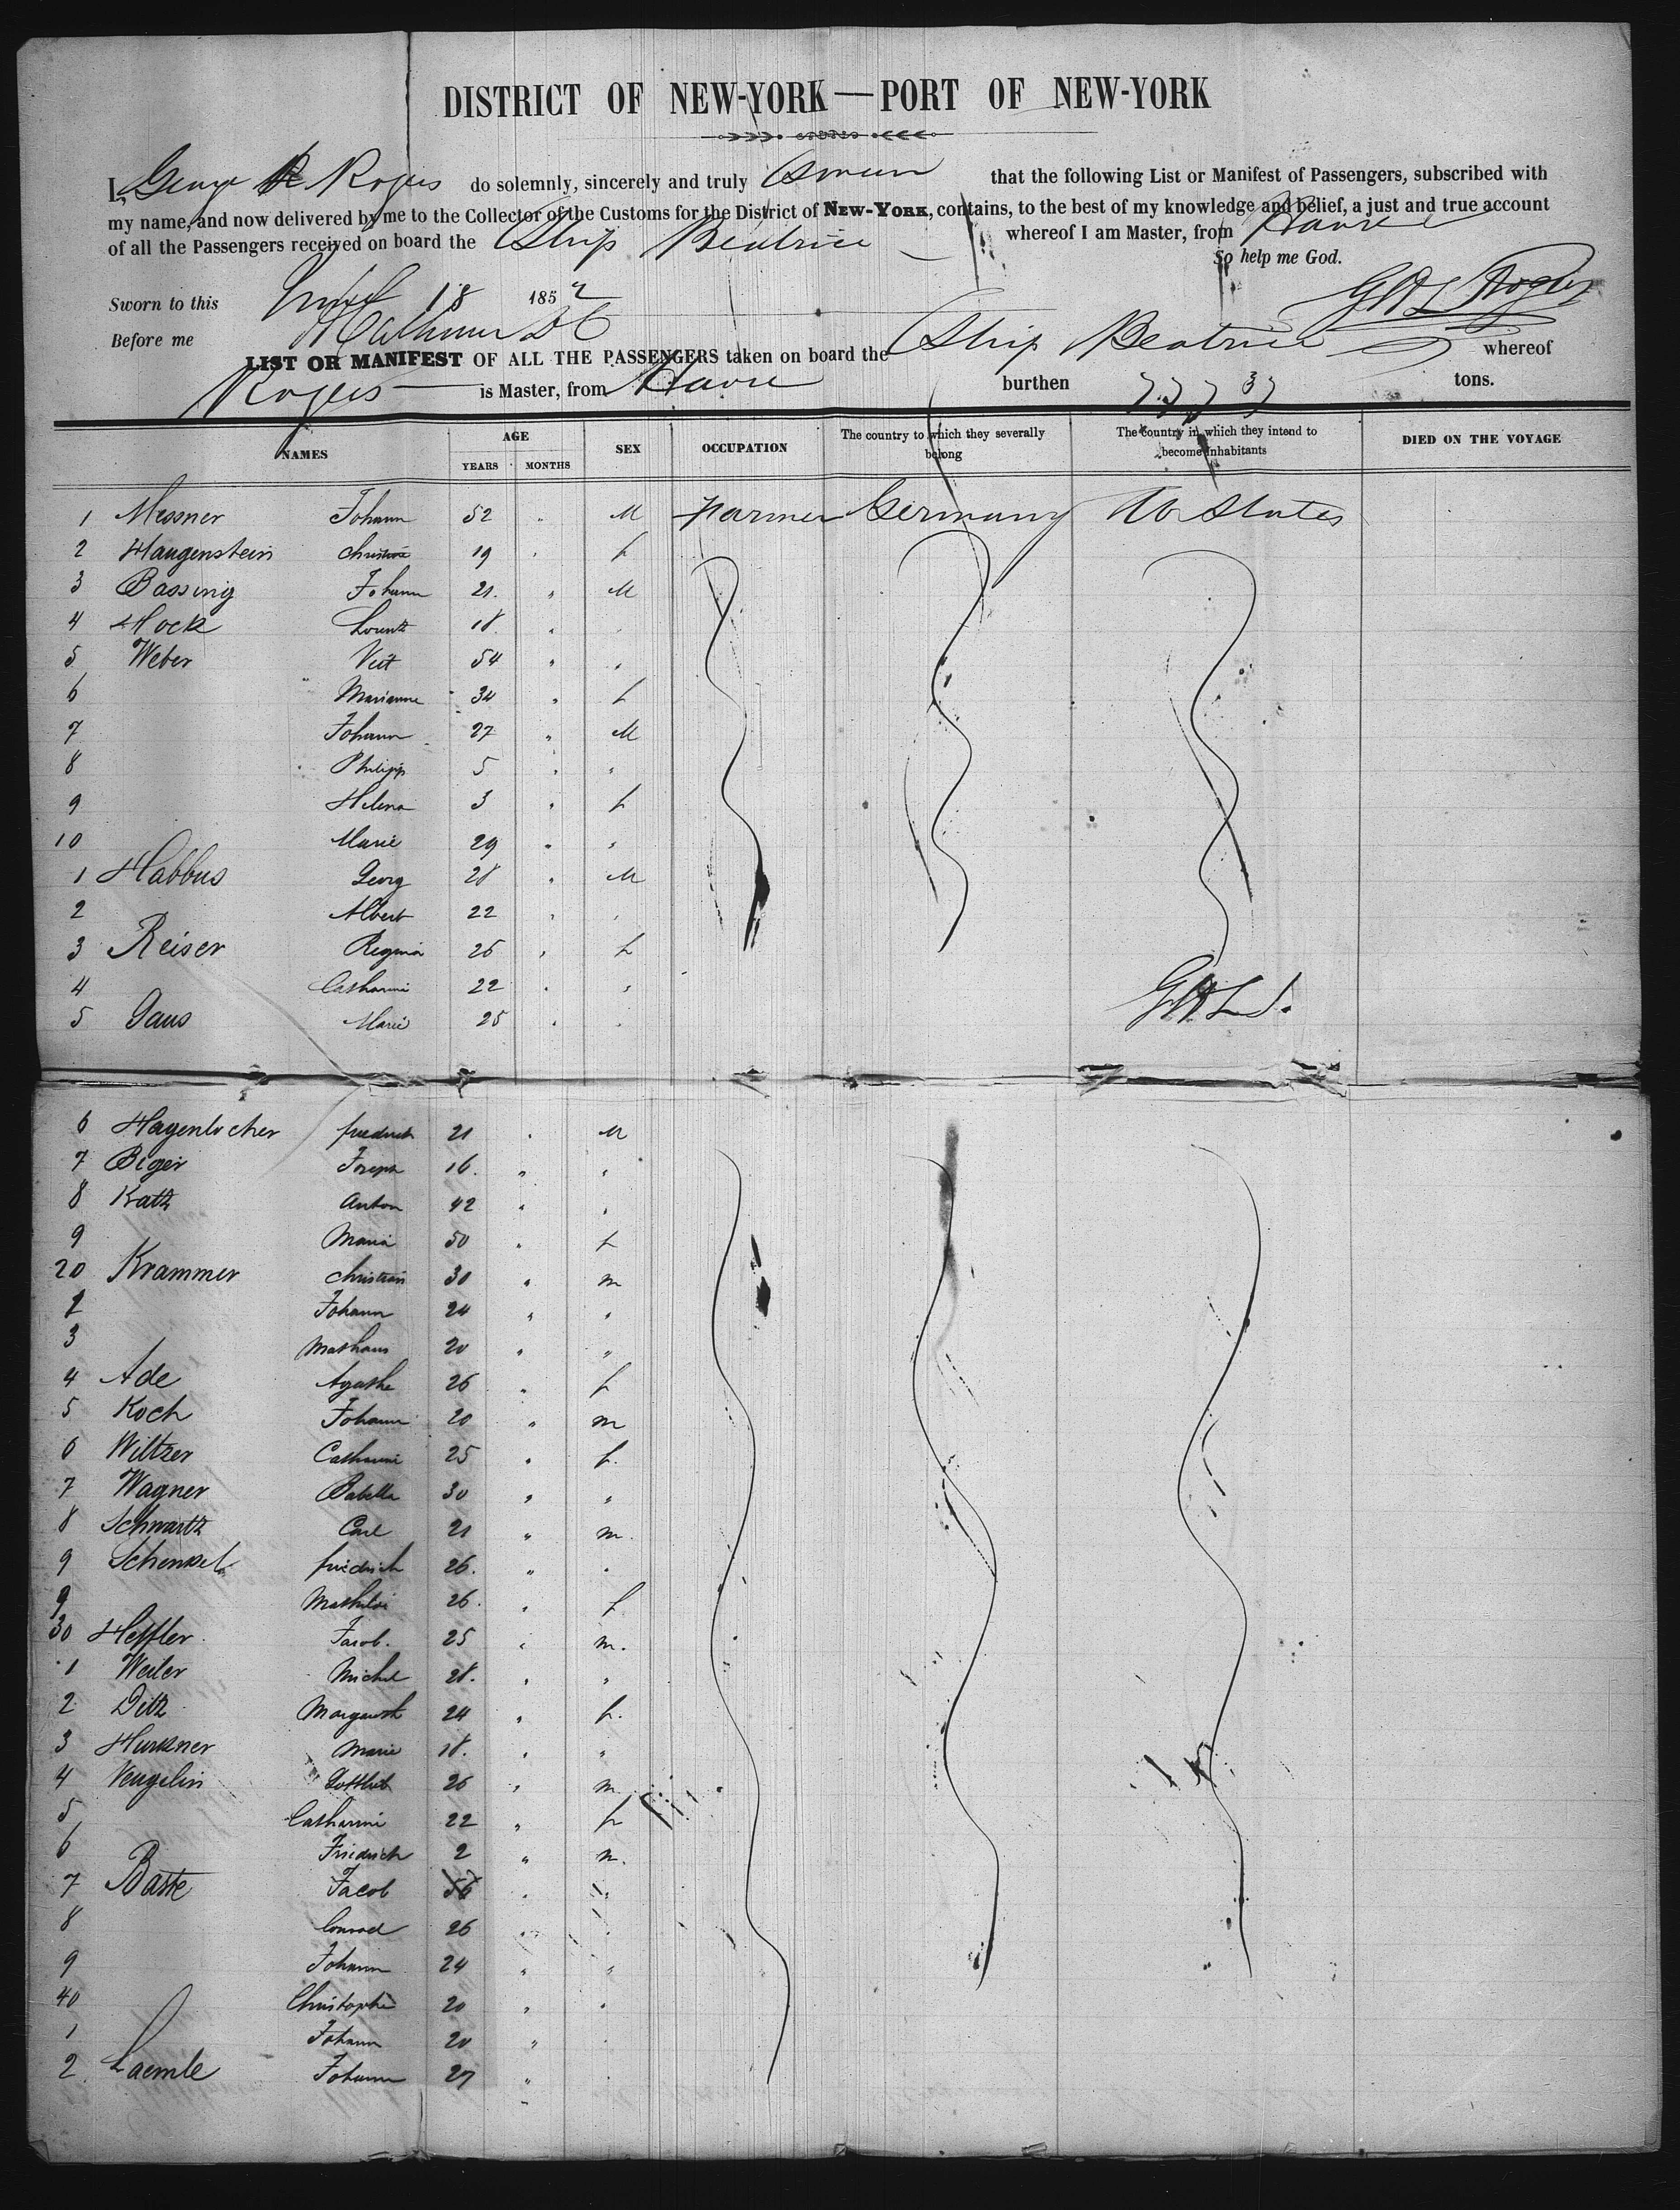 DISTRICT OF NEW-YORK—PORT OF NEW-YORK
I, George R Rogers do solemnly, sincerely and truly that the following List or Manifest of Passengers, subscribed with
my name, and now delivered by me to the Collector of the Customs for the District of NEW-YORK, contains, to the best of my knowledge and belief, a just and true account
of all the Passengers received on board the Ship Beatrice whereof I am Master, from Havre
So help me God.
Sworn to this 18 1852
Before me
LIST OR MANIFEST OF ALL THE PASSENGERS taken on board the Ship Beatrice whereof
Rogers is Master, from Havre burthen tons.
NAMES AGE YEARS MONTHS SEX OCCUPATION The country to which they severally belong The country in which they intend to become inhabitants DIED ON THE VOYAGE
1 Messner Johann 52 " M Farmer Germany U States
2 Haugenstein Christine 19 " f
3 Bassing Johann 21. " M
4 Hock Lorentz 18. " "
5 Weber Veit 54 " "
6 Marianne 34 " f
7 Johann 27 " M
8 Philipp 5 " "
9 Helena 3 " f
10 Marie 29 " "
1 Habbus Georg 28 " M
2 Albert 22 " "
3 Reiser Regina 26 " f
4 Catharine 22 " "
5 Gaus Marie 25 " "
6 Hagenlocher friedrich 21 " M
7 Joseph 16. " "
8 Katz Anton 42 " "
9 Maria 50 " f
20 Krammer Christian 30 " m
2 Johann 24 " "
3 Mathaus 20 " "
4 Ade Agathe 26 " f
5 Koch Johann 20 " m
6 Wiltzer Catharine 25 " f.
7 Wagner Babette 30 " "
8 Schwartz Carl 21 " m.
9 Schenkel friedrich 26. " "
9 26. " f
30 Heffler Jacob. 25 " m.
1 Weiler Michel 28. " "
2 Ditz Margareth 24 " f.
3 Marie 18. " "
4 Vengelin Gottlieb 26 " m
5 Catharine 22 " f
6 Friedrich 2 " m.
7 Baste Jacob 56 " "
8 Conrad 26 " "
9 Johann 24 " "
40 Christophe 20 " "
1 Johann 20 " "
2 Laemle Johann 27 " "